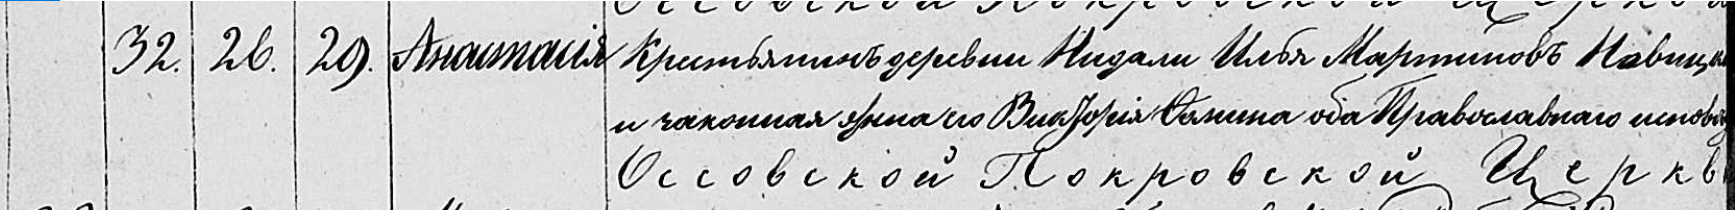 Оссовской Покровской Церкви
32. 26. 29. Анастасія Крестьянинъ деревни Нидали Илья Мартиновъ Навицк
и законная жена его Викторія Фомина оба Православнаго испов
Оссовской Покровской Церкв